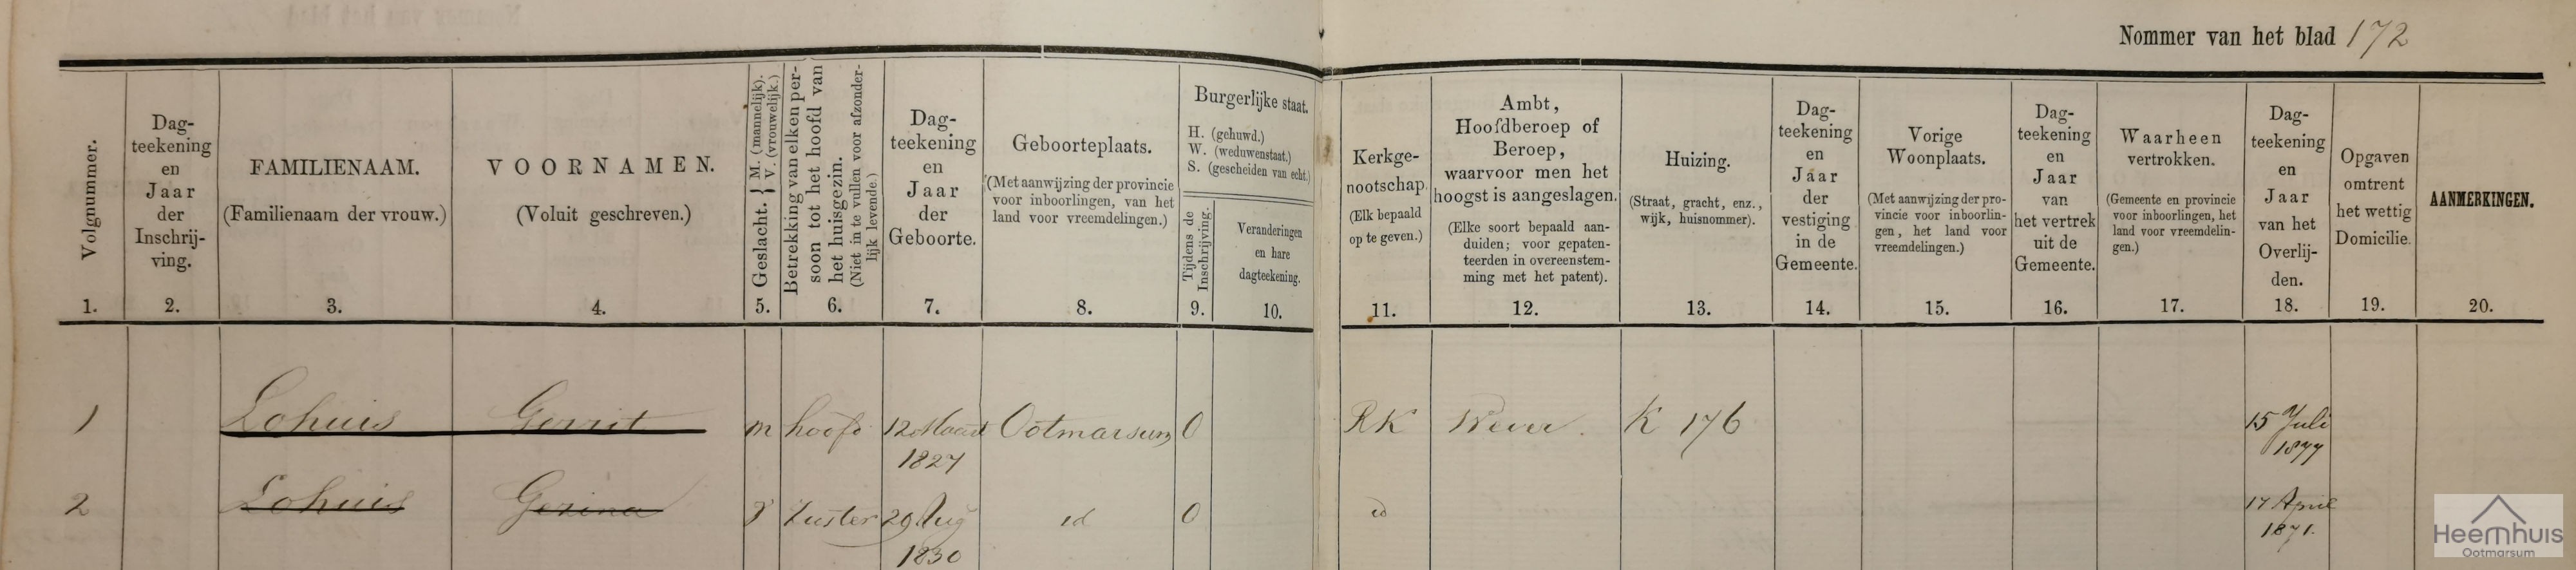 Nommer van het blad 172
Volgnummer.
1.
Dag-
teekening
en
Jaar
der
Inschrij-
ving.
2.
FAMILIENAAM.
(Familienaam der vrouw.)
3.
VOORNAMEN.
(Voluit geschreven.)
4.
Geslacht. } M. (mannelijk).
V. (vrouwelijk.)
5.
Betrekking van elken per-
soon tot het hoofd van
het huisgezin.
(Niet in te vullen voor afzonder-
lijk levende.)
6.
Dag-
teekening
en
Jaar
der
Geboorte.
7.
Geboorteplaats.
(Met aanwijzing der provincie
voor inboorlingen, van het
land voor vreemdelingen.)
8.
Burgerlijke staat.
H. (gehuwd.)
W. (weduwenstaat.)
S. (gescheiden van echt.)
Tijdens de
Inschrijving.
9.
Veranderingen
en hare
dagteekening.
10.
Kerkge-
nootschap.
(Elk bepaald
op te geven.)
11.
Ambt,
Hoofdberoep of
Beroep,
waarvoor men het
hoogst is aangeslagen.
(Elke soort bepaald aan-
duiden; voor gepaten-
teerden in overeenstem-
ming met het patent).
12.
Huizing.
(Straat, gracht, enz.,
wijk, huisnommer).
13.
Dag-
teekening
en
Jaar
der
vestiging
in de
Gemeente.
14.
Vorige
Woonplaats.
(Met aanwijzing der pro-
vincie voor inboorlin-
gen, het land voor
vreemdelingen.)
15.
Dag-
teekening
en
Jaar
van
het vertrek
uit de
Gemeente.
16.
Waarheen
vertrokken.
(Gemeente en provincie
voor inboorlingen, het
land voor vreemdelin-
gen.)
17.
Dag-
teekening
en
Jaar
van het
Overlij-
den.
18.
Opgaven
omtrent
het wettig
Domicilie.
19.
AANMERKINGEN.
20.
1 Lohuis Gerrit m hoofd 12 Maart Ootmarsum O RK Wever. K 176 15 Juli
1827 1877
2 Lohuis Gezina zuster 29 Aug id O id 17 April
1830 1871.
Heemhuis
Ootmarsum